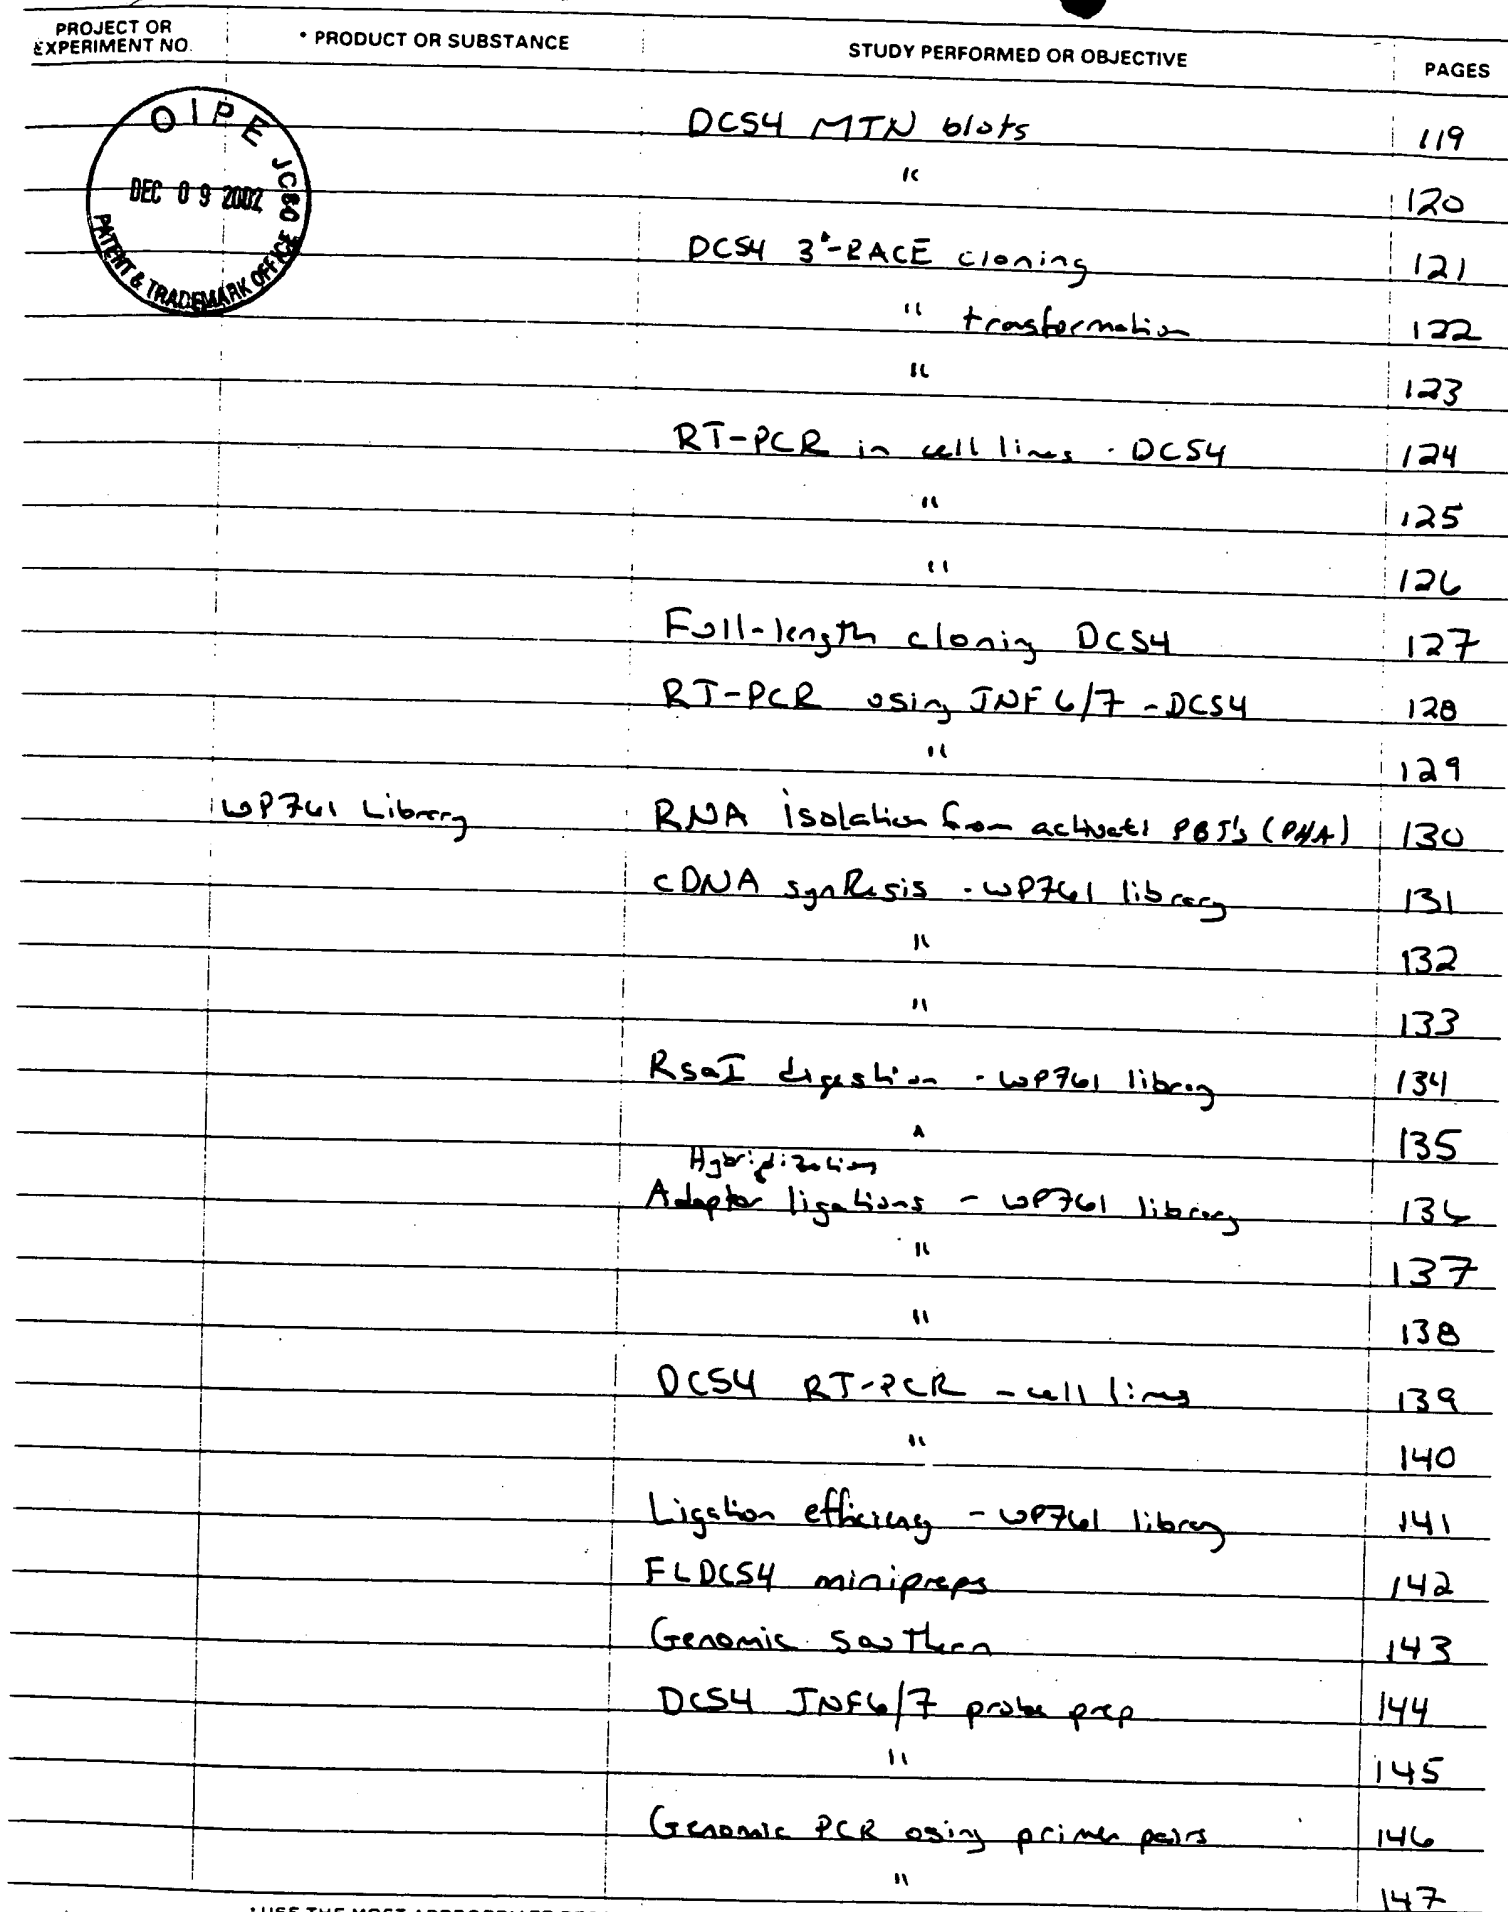 PROJECT OR
EXPERIMENT NO.
* PRODUCT OR SUBSTANCE
STUDY PERFORMED OR OBJECTIVE
PAGES
OIPE JC80
DEC 09 2002
PATENT & TRADEMARK OFFICE
DCS4 MTN blots 119
" 120
DCS4 3'-RACE cloning 121
" transformation 122
" 123
RT-PCR in cell lines - DCS4 124
" 125
" 126
Full-length cloning DCS4 127
RT-PCR using JNF6/7 - DCS4 128
" 129
WP761 Library RNA isolation from PBT's (PHA) 130
cDNA synthesis - WP761 library 131
" 132
" 133
RsaI digestion - WP761 library 134
" 135
Hybridization
Adaptor ligations - WP761 library 136
" 137
" 138
DCS4 RT-PCR - cell lines 139
" 140
Ligation efficiency - WP761 library 141
FLDCS4 minipreps 142
Genomic Southern 143
DCS4 JNF6/7 probe prep 144
" 145
Genomic PCR using primer pairs 146
" 147